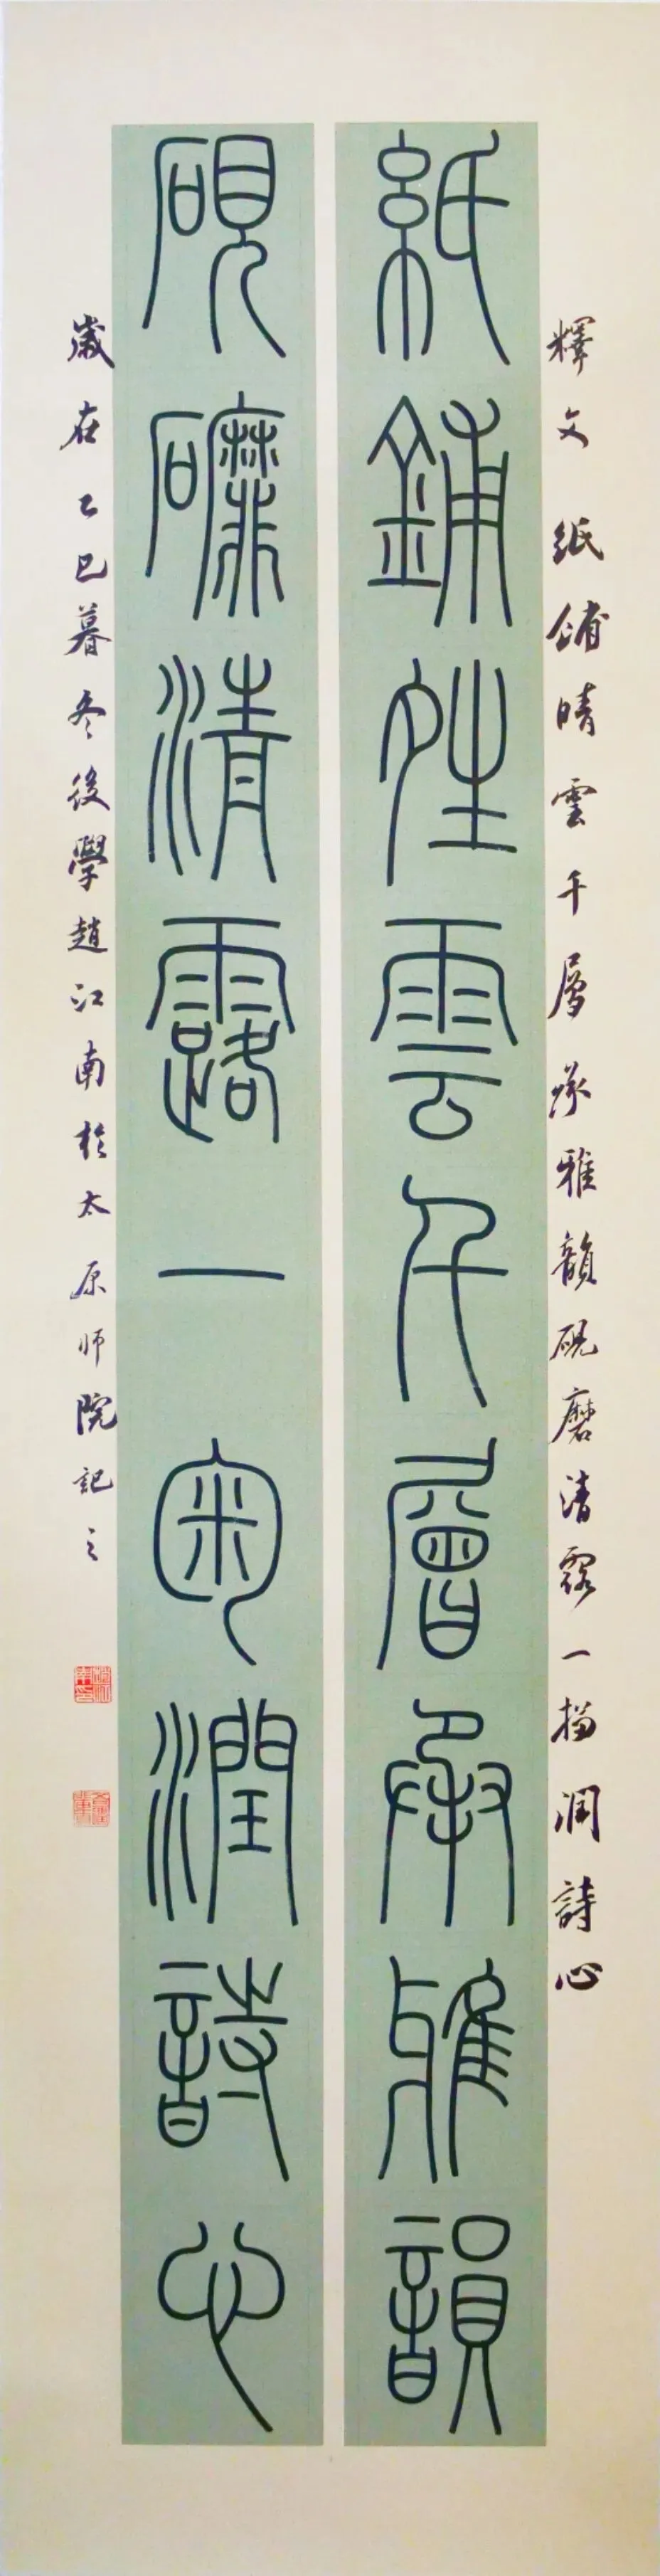 釋文 紙鋪晴雲千層承雅韻硯磨清露一掬潤詩心
紙鋪夝雲千層承雅韻
硯磨清露一匊潤詩心
歲在乙巳暮冬後學趙江南於太原师院記之